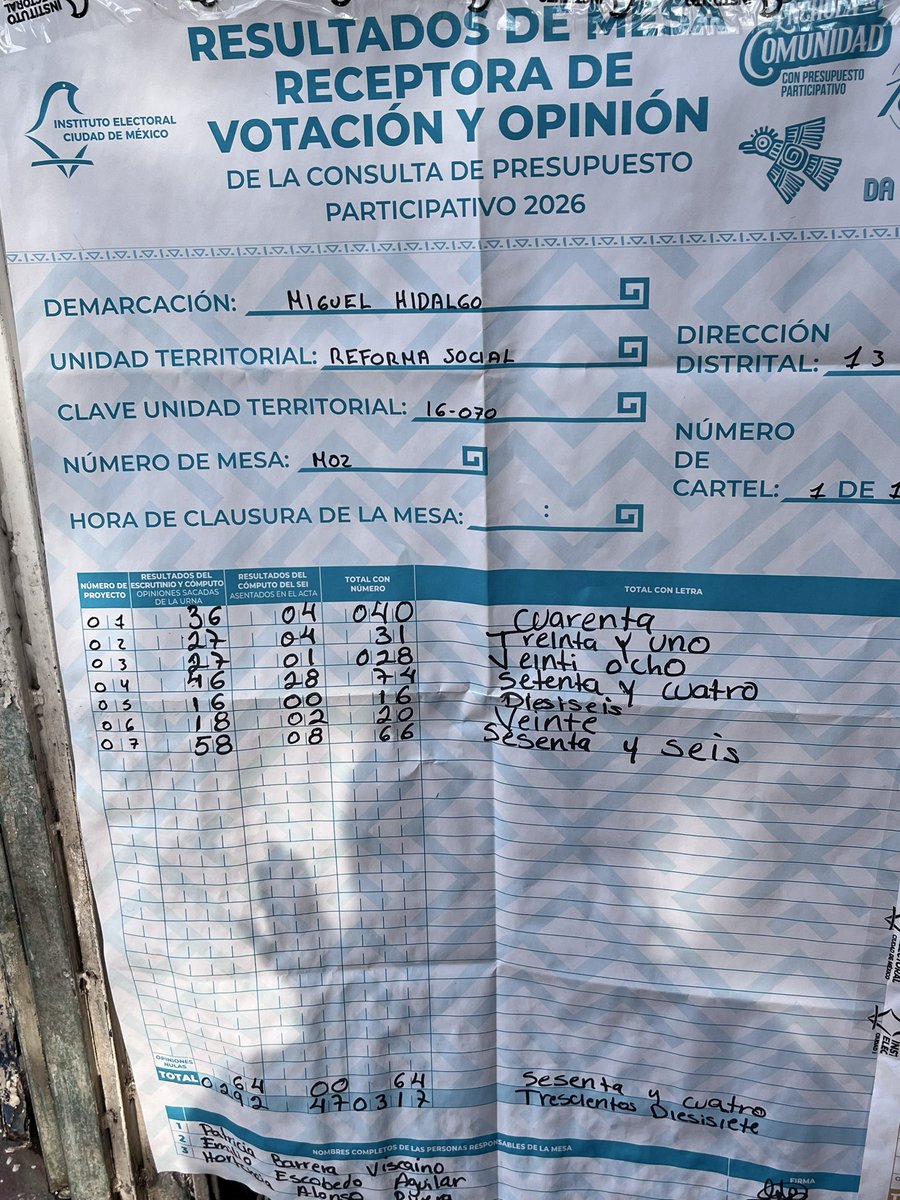 RESULTADOS DE MESA
RECEPTORA DE
VOTACIÓN Y OPINIÓN
DE LA CONSULTA DE PRESUPUESTO
PARTICIPATIVO 2026
INSTITUTO ELECTORAL
CIUDAD DE MÉXICO
COMUNIDAD
CON PRESUPUESTO
PARTICIPATIVO
DA
DEMARCACIÓN: MIGUEL HIDALGO
UNIDAD TERRITORIAL: REFORMA SOCIAL
DIRECCIÓN
DISTRITAL: 13
CLAVE UNIDAD TERRITORIAL: 16-070
NÚMERO DE MESA: M02
NÚMERO
DE
CARTEL: 1 DE 1
HORA DE CLAUSURA DE LA MESA: :
NÚMERO DE PROYECTO RESULTADOS DEL ESCRUTINIO Y CÓMPUTO OPINIONES SACADAS DE LA URNA RESULTADOS DEL CÓMPUTO DEL SEI ASENTADOS EN EL ACTA TOTAL CON NÚMERO TOTAL CON LETRA
01 36 04 040 Cuarenta
02 27 04 31 Treinta y uno
03 27 01 028 Veinti ocho
04 46 28 74 Setenta y cuatro
05 16 00 16 Diestseis
06 18 02 20 Veinte
07 58 08 66 Sesenta y seis
OPINIONES NULAS 0 64 00 64 Sesenta y cuatro
TOTAL 0292 47 0317 Trescientos Diesisiete
NOMBRES COMPLETOS DE LAS PERSONAS RESPONSABLES DE LA MESA FIRMA
1 Patricia Barrera Viscaino
2 Emilio Escobedo Aguilar
3 Alonso